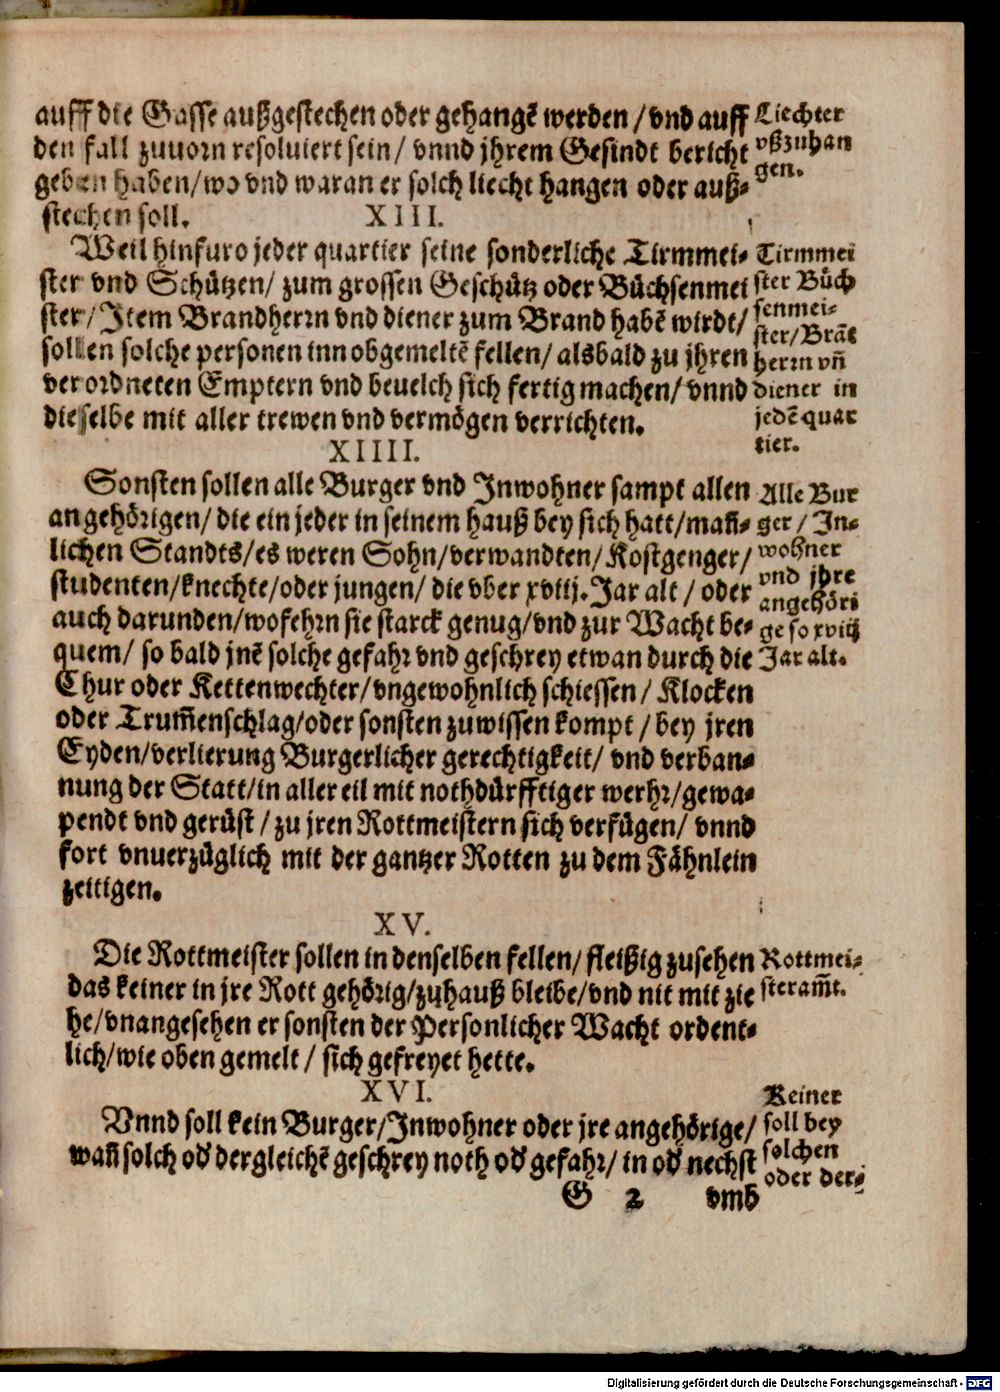 auff die Gasse außgestechen oder gehangẽ werden / vnd auff
den fall zuuorn resoluiert sein / vnnd jhrem Gesindt bericht
geben haben / wo vnd waran er solch liecht hangen oder auß-
stechen soll.
Liechter
vßzuhan
gen.
XIII.
Weil hinfuro jeder quartier seine sonderliche Tirmmei-
ster vnd Schützen / zum grossen Geschütz oder Büchsenmei
ster / Item Brandherrn vnd diener zum Brand habẽ wirdt /
sollen solche personen inn obgemeltẽ fellen / alsbald zu jhren
verordneten Emptern vnd beuelch sich fertig machen / vnnd
dieselbe mit aller trewen vnd vermögen verrichten.
Tirmmei
ster Büch
senmei-
ster / Brãt
herrn vñ
diener in
jedẽ quar
tier.
XIIII.
Sonsten sollen alle Burger vnd Inwohner sampt allen
angehörigen / die ein jeder in seinem hauß bey sich hatt / mañ-
lichen Standts / es weren Sohn / verwandten / Kostgenger /
studenten / knechte / oder jungen / die vber xviij. Jar alt / oder
auch darunden / wofehrn sie starck genug / vnd zur Wacht be-
quem / so bald jnẽ solche gefahr vnd geschrey etwan durch die
Thur oder Kettenwechter / vngewohnlich schiessen / Klocken
oder Trum̃enschlag / oder sonsten zuwissen kompt / bey jren
Eyden / verlierung Burgerlicher gerechtigkeit / vnd verban-
nung der Statt / in aller eil mit nothdürfftiger werhr / gewa-
pendt vnd gerüst / zu jren Rottmeistern sich verfügen / vnnd
fort vnuerzüglich mit der gantzer Rotten zu dem Fähnlein
zeitigen.
Alle Bur
ger / In-
wohner
vnd jhre
angehöri
ge so xviij
Jar alt.
XV.
Die Rottmeister sollen in denselben fellen / fleißig zusehen
das keiner in jre Rott gehörig / zuhauß bleibe / vnd nit mit zie
he / vnangesehen er sonsten der Personlicher Wacht ordent-
lich / wie oben gemelt / sich gefreyet hette.
Rottmei-
steram̃t.
XVI.
Vnnd soll kein Burger / Inwohner oder jre angehörige /
wañ solch od' dergleichẽ geschrey noth od' gefahr / in od' nechst
Keiner
soll bey
solchen
oder der-
G 2 vmb
Digitalisierung gefördert durch die Deutsche Forschungsgemeinschaft - DFG